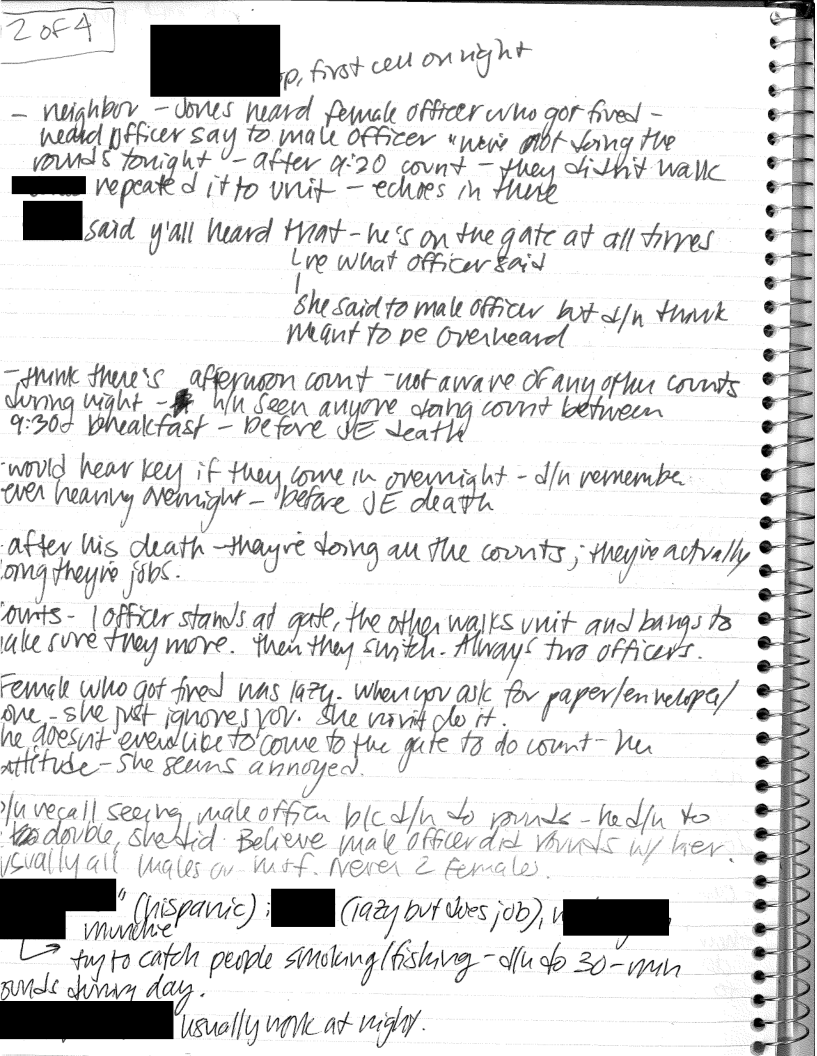 2 of 4
op, first cell on right
- neighbor - Jones heard female officer who got fired -
heard officer say to male officer "we're not doing the
rounds tonight - after 9:20 count - they didn't walk
repeated it to unit - echoes in there
said y'all heard that - he's on the gate at all times
re what officer said
she said to male officer but d/n think
meant to be overheard
- think there's afternoon count - not aware of any other counts
during night - h/n seen anyone doing count between
9:30 & breakfast - before JE death
- would hear key if they come in overnight - d/n remember
ever hearing overnight - before JE death
- after his death - they're doing all the counts; they're actually
oing they're jobs.
ounts - 1 officer stands at gate, the other walks unit and bangs to
ake sure they move. Then they switch. Always two officers.
Female who got fired was lazy. When you ask for paper/envelope/
one - she just ignores you. She won't do it.
he doesn't even like to come to the gate to do count - her
attitude - she seems annoyed.
d/n recall seeing male officer b/c d/n do rounds - he d/n do
double, she did. Believe male officer did rounds w/ her.
usually all males or m+f. Never 2 females.
" (hispanic); (lazy but does job),
munchie
try to catch people smoking/fishing - d/n do 30-min
ounds during day.
usually work at night.